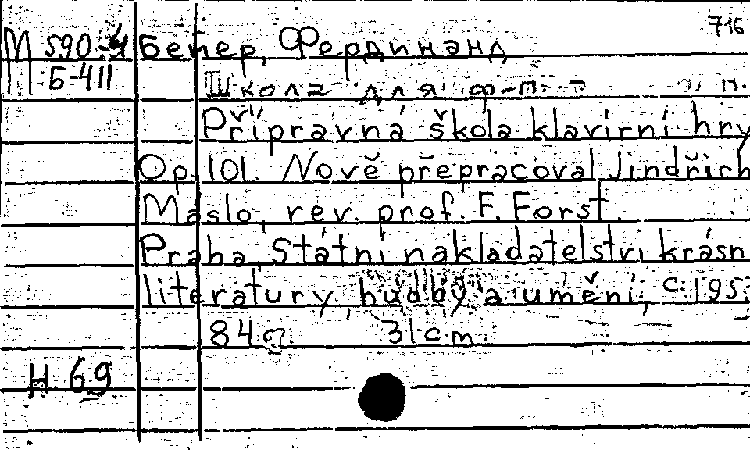 716
М 590-4 Бейер, Фердинанд
Б-411
Школа для ф-п.
Přípravná škola klavírní hry
Op. 101. Nově přepracoval Jindřich
Máslo, rev. prof. F. Forst.
Praha, Státní nakladatelství krásn
literatury, hudby a umění, c. 195
84 31 cm.
Н 69